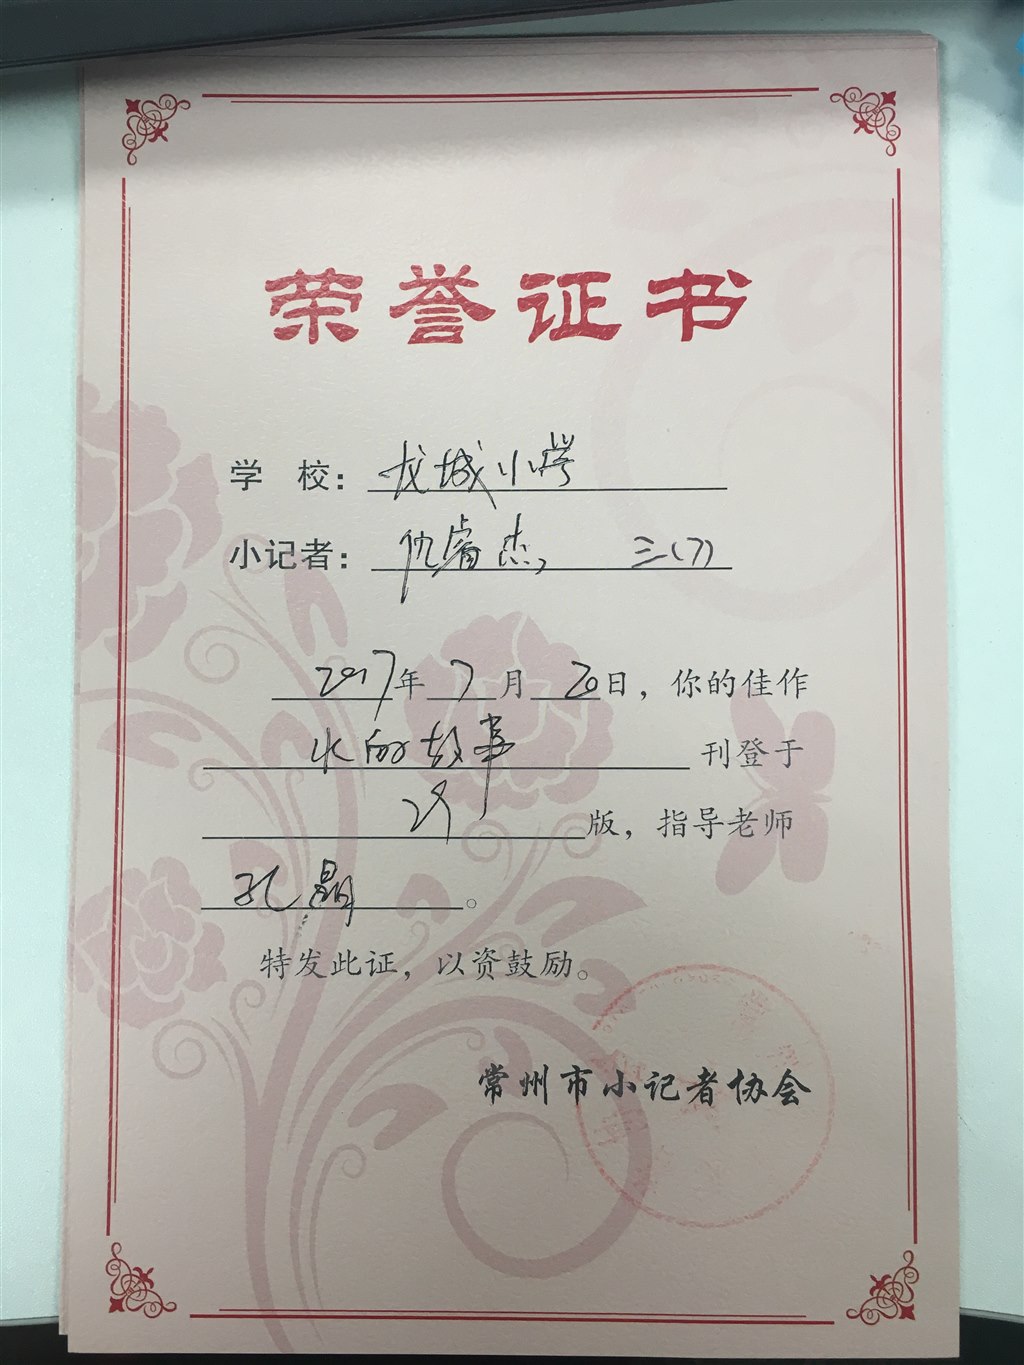 荣誉证书
学 校：龙城小学
小记者：仇睿杰 三(7)
2017年7月20日，你的佳作
水的故事 刊登于
版，指导老师
孔晶。
特发此证，以资鼓励。
常州市小记者协会